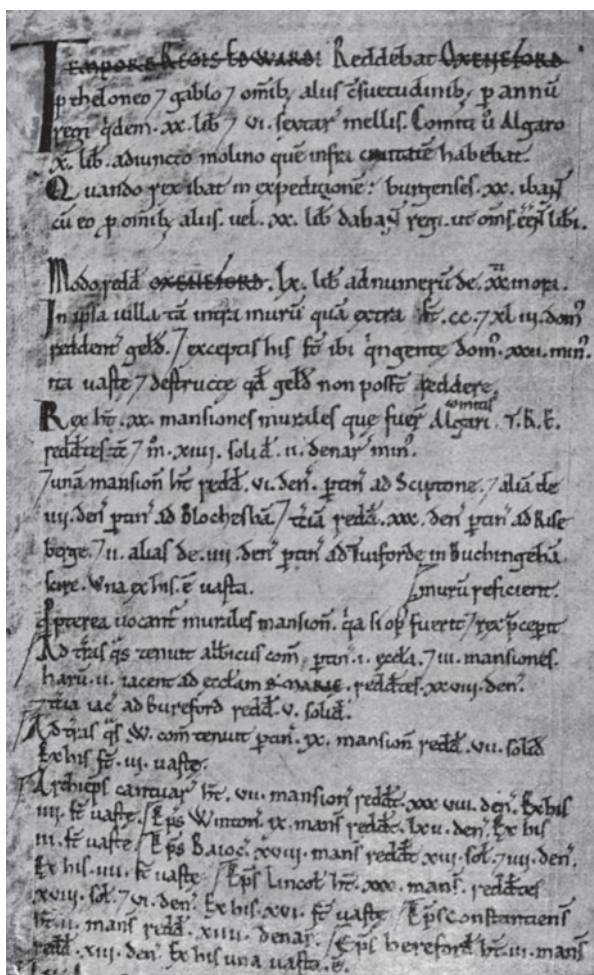 TEMPORE REGIS EDWARDI Reddebat OXENEFORD
p theloneo ⁊ gablo ⁊ omib; aliis c̄suetudinib; p annū
regi q̇dem .xx. lib̄ ⁊ vi. sextar̄ mellis. Comiti ū Algaro
x. lib̄ adiuncto molino quē infra ciuitatē habebat.
Quando rex ibat in expeditione: burgenses .xx. iban̄t
cū eo p omib; aliis. uel .xx. lib̄ daban̄t regi. ut om̄s. eēn̄t libi.
Modo redd̄ OXENEFORD. lx. lib̄ ad numerū de .xx. in ora.
In ipsa uilla tā intra murū quā extra hn̄t .cc. ⁊ xl iii. dom⁹
reddent̄ geld̄. ⁊ exceptis his st̄ ibi q̇ngente dom⁹ .xxii. min⁹.
ita uaste ⁊ destructe qd̄ geld̄ non poss̄t reddere.
Rex ht̄ .xx. mansiones murales que fuer̄ Algari comitis T.R.E.
reddtes tc̄ ⁊ m̊ .xiiii. solid̄ .ii. denar̄ min⁹.
⁊ unā mansion̄ ht̄ redd̄ .vi. den̄. ptin̄ ad Sciptone. ⁊ aliā de
iiii. den̄ ptin̄ ad Blochesha. ⁊ tciā redd̄ .xxx. den̄ ptin̄ ad Rise
berge. ⁊ ii. alias de .iiii. den̄ ptin̄ ad Tuiforde in Buchingehā
scire. Una ex his. ē uasta. murū reficient.
ppterea uocant̄ murales mansion̄. q̇a si op⁹ fuerit ⁊ rex p̄cepit
Ad t̄ras q̄s tenuit albicus com̄ ptin̄ .i. eccla. ⁊ iii. mansiones.
harū .ii. iacent ad eccłam S MARIE. reddtes .xxviii. den̄.
⁊ tcia iac̄ ad Bureford redd̄ .v. solid̄.
Ad t̄ras q̄s W. com tenuit ptin̄ .ix. mansion̄ redd̄ .vii. solid̄
Ex his st̄ .iii. uaste.
Archiep̄s cantuar̄ ht̄ .vii. mansion̄ redd̄t .xxx viii. den̄. Ex his
iiii. st̄ uaste. Ep̄s Winton̄ .ix. mans̄ redd̄t .lxv. den̄. Ex his
iii. st̄ uaste. Ep̄s Baioc̄ .xviii. mans̄ redd̄t xiii. sol̄. ⁊ iiii. den̄.
Ex his .iiii. st̄ uaste. Ep̄s Lincol̄ ht̄ .xxx. mans̄. reddtes
xviii. sol̄. ⁊ vi. den̄. Ex his .xvi. st̄ uaste. Ep̄s constantiens̄
ht̄ .ii. mans̄ redd̄ .xiiii. denar̄. Ep̄s hereford̄ ht̄ .iii. mans̄
redd̄ .xiii. den̄. Ex his una uasta. ē.